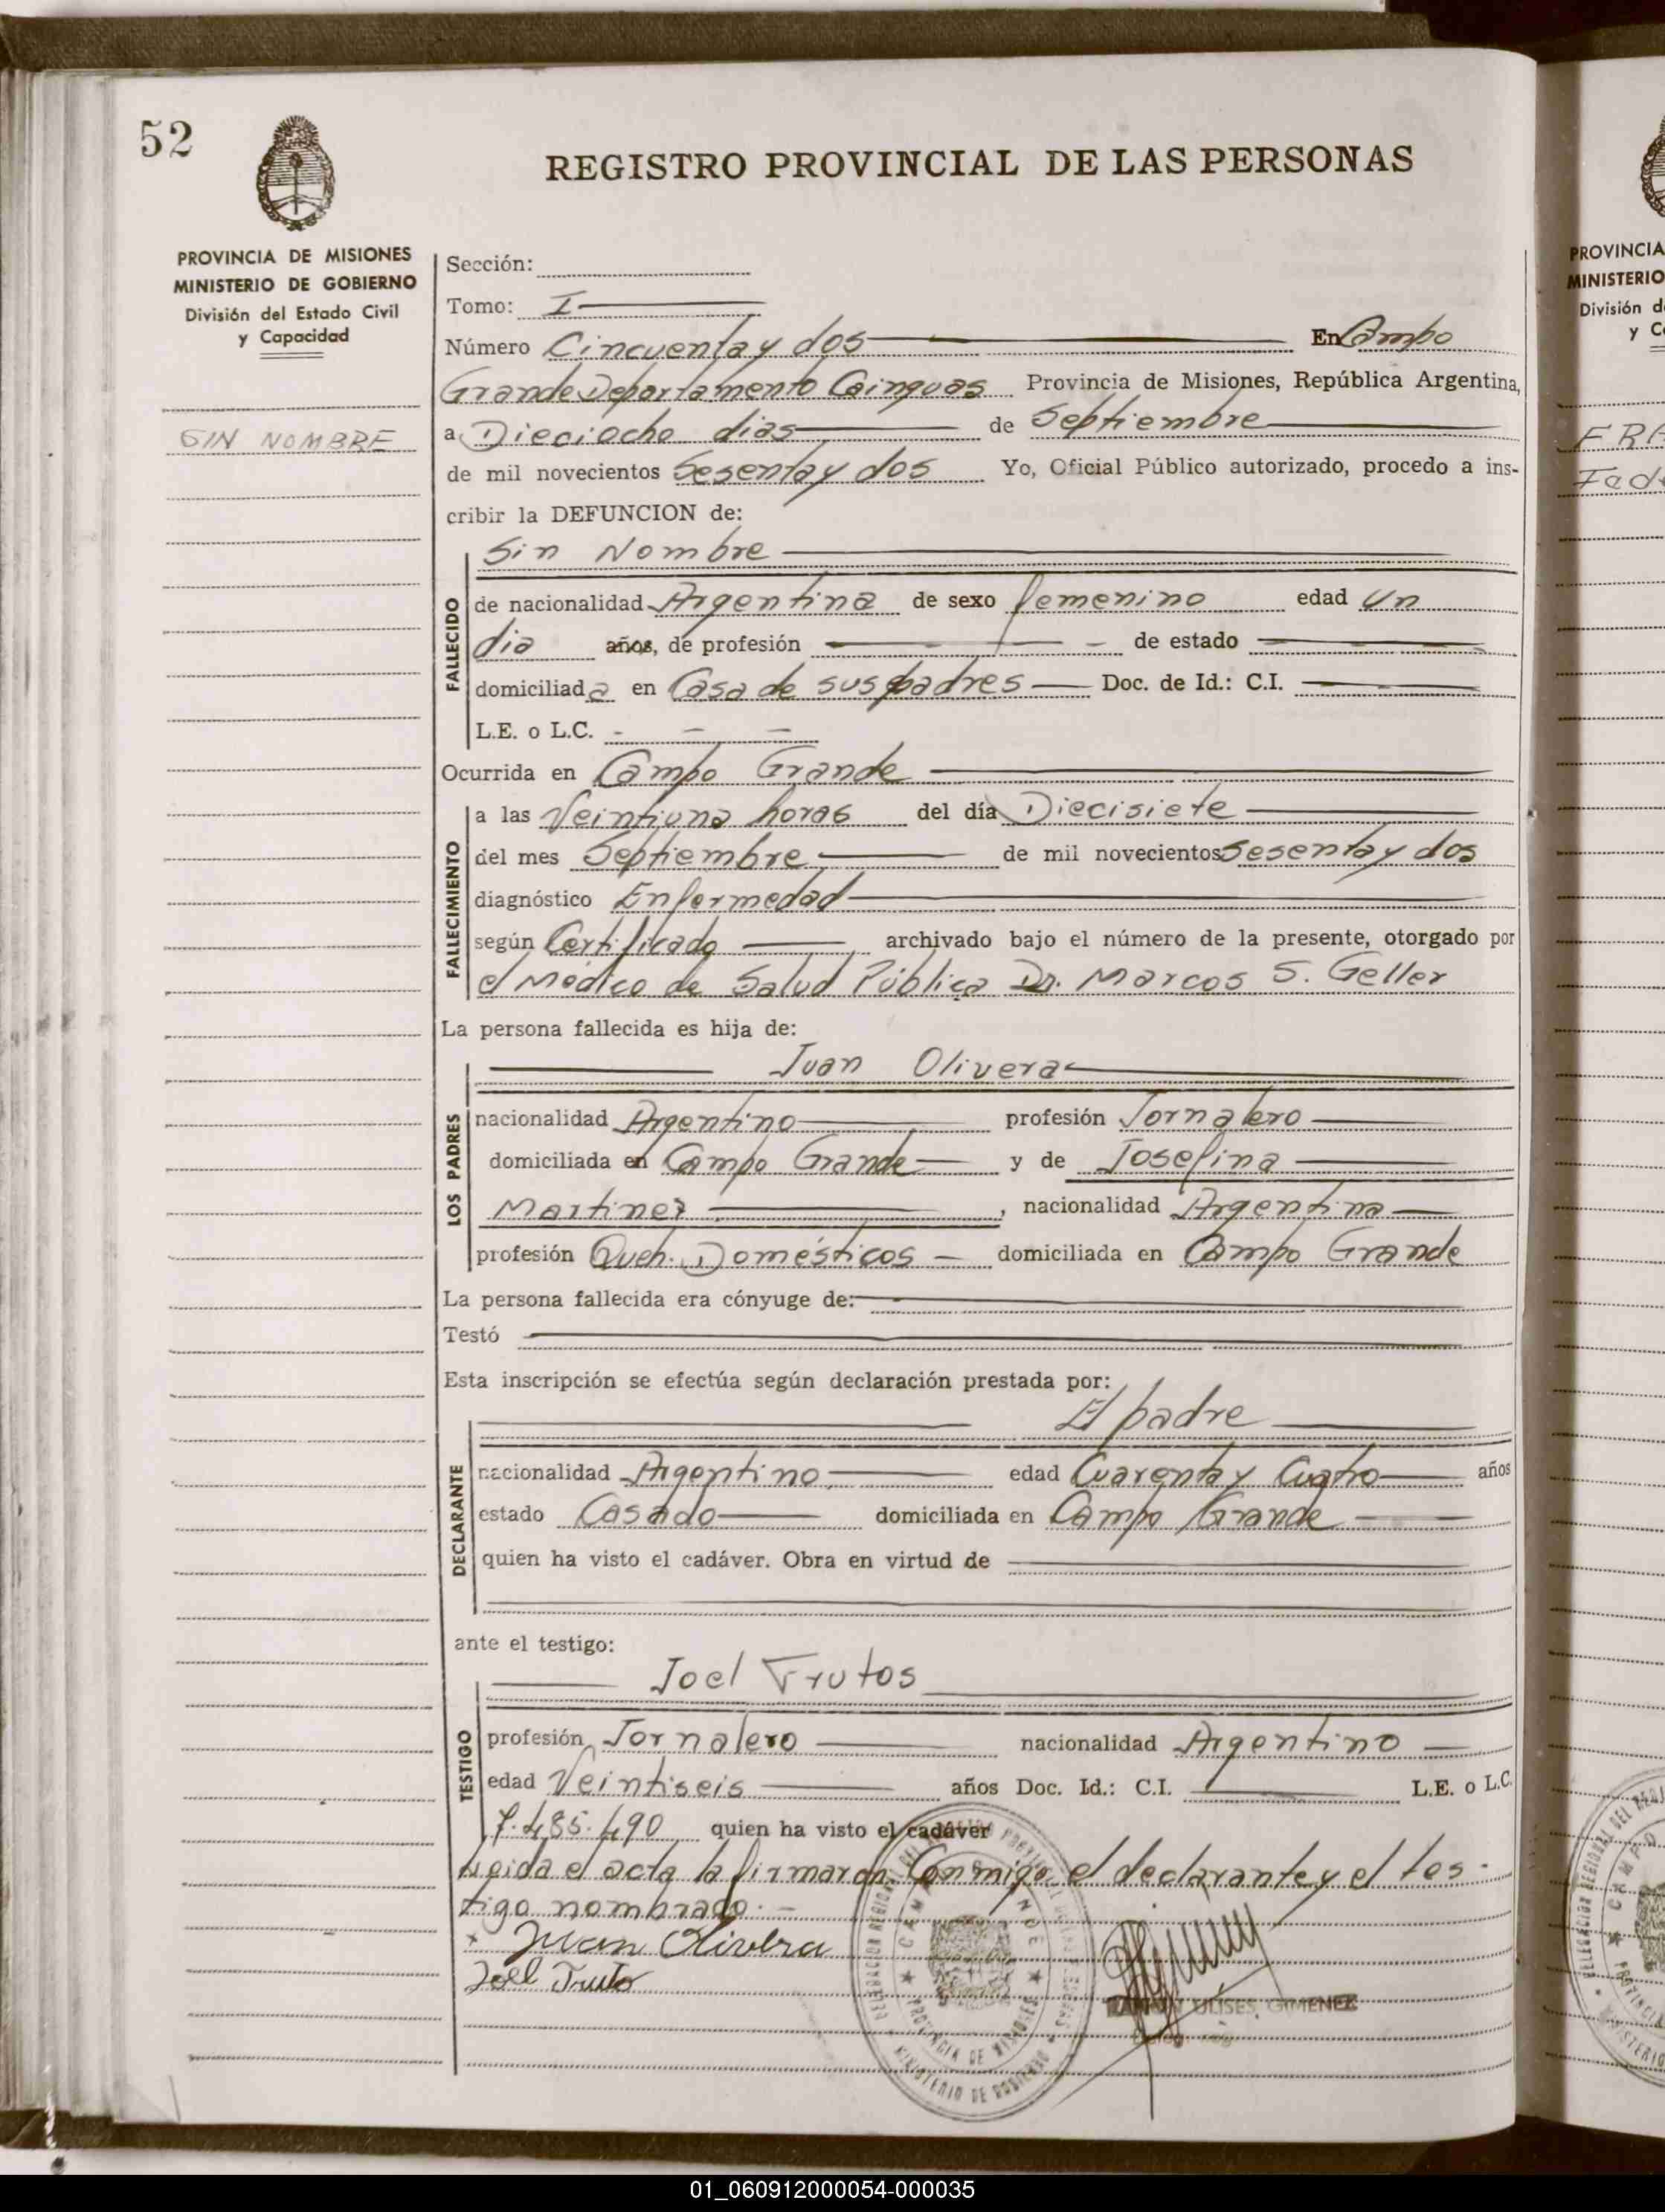 52
REGISTRO PROVINCIAL DE LAS PERSONAS
PROVINCIA DE MISIONES
MINISTERIO DE GOBIERNO
División del Estado Civil
y Capacidad
SIN NOMBRE
Sección:
Tomo: I
Número Cincuenta y dos En Campo
Grande Departamento Cainguas Provincia de Misiones, República Argentina,
a Dieciocho dias de Septiembre
de mil novecientos Sesenta y dos Yo, Oficial Público autorizado, procedo a ins-
cribir la DEFUNCION de:
Sin Nombre
FALLECIDO
de nacionalidad Argentina de sexo femenino edad un
dia años, de profesión de estado
domiciliada en Casa de sus padres Doc. de Id.: C.I.
L.E. o L.C. - - -
Ocurrida en Campo Grande
FALLECIMIENTO
a las Veintiuna horas del día Diecisiete
del mes Septiembre de mil novecientos Sesenta y dos
diagnóstico Enfermedad
según Certificado archivado bajo el número de la presente, otorgado por
el Médico de Salud Pública Dr. Marcos S. Geller
La persona fallecida es hija de:
Juan Olivera
LOS PADRES
nacionalidad Argentino profesión Jornalero
domiciliada en Campo Grande y de Josefina
Martinez, nacionalidad Argentina
profesión Queh. Domésticos domiciliada en Campo Grande
La persona fallecida era cónyuge de:
Testó
Esta inscripción se efectúa según declaración prestada por:
El padre
DECLARANTE
nacionalidad Argentino edad Cuarenta y Cuatro años
estado Casado domiciliada en Campo Grande
quien ha visto el cadáver. Obra en virtud de
ante el testigo:
Joel Frutos
TESTIGO
profesión Jornalero nacionalidad Argentino
edad Veintiseis años Doc. Id.: C.I. L.E. o L.C.
7.485.490 quien ha visto el cadáver
Leida el acta la firmaron Conmigo el declarante y el tes-
tigo nombrado.-
Juan Olivera
Joel Fruto
ULISES GIMENEZ
CAMPO GRANDE
PROVINCIA DE MISIONES
MINISTERIO DE GOBIERNO
PROVINCIA
MINISTERIO
División d
y C
FRA
01_060912000054-000035